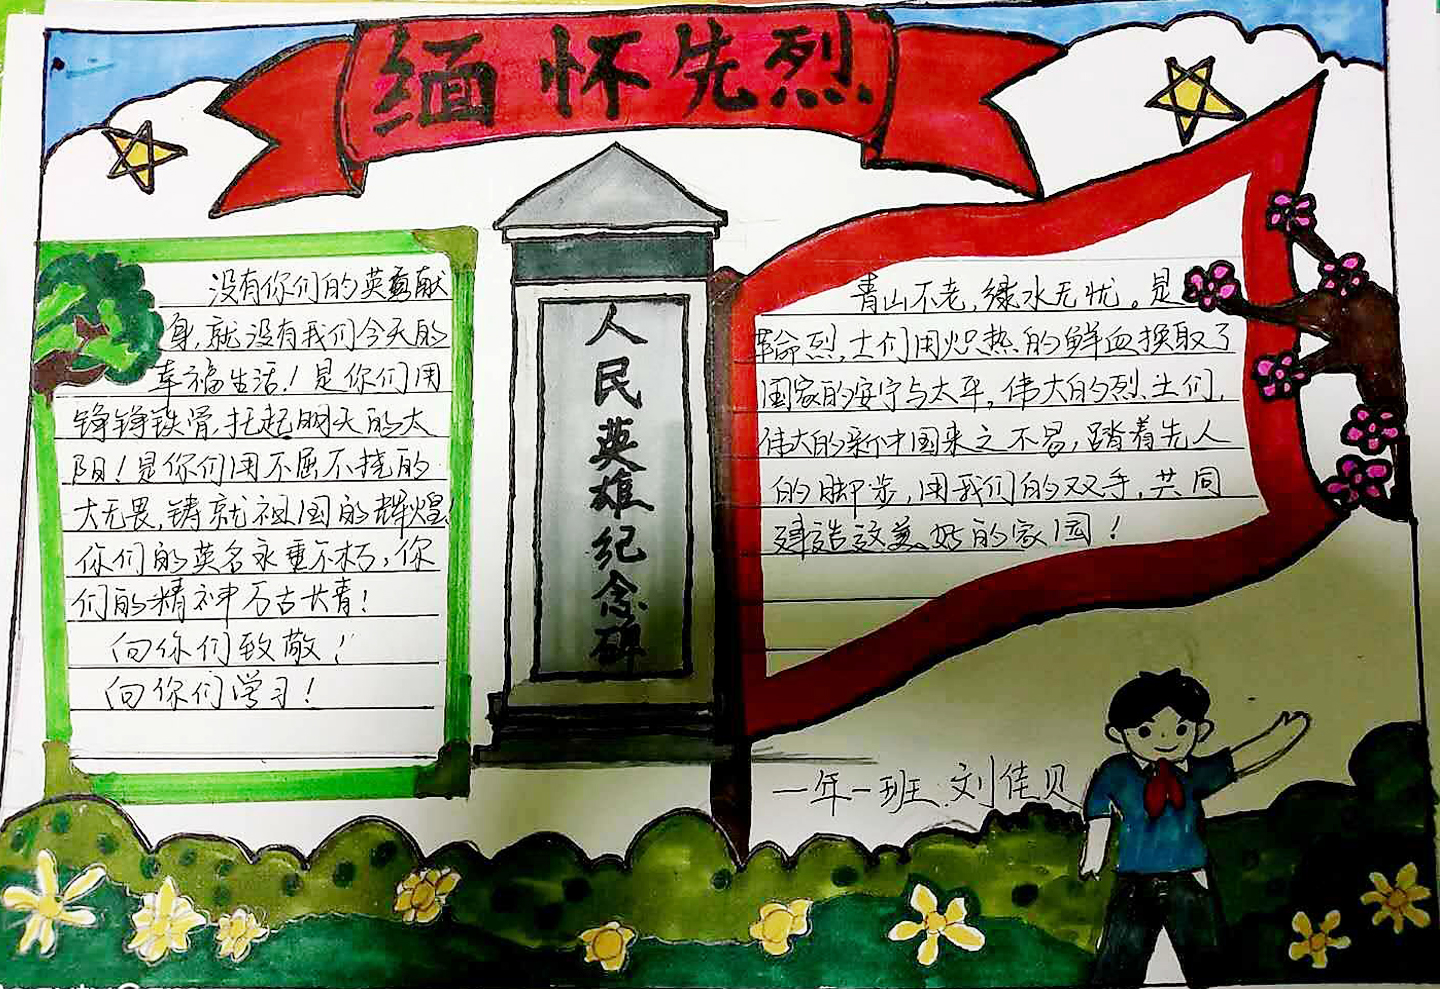 缅怀先烈
没有你们的英勇献
身,就没有我们今天的
幸福生活!是你们用
铮铮铁骨,托起明天的太
阳!是你们用不屈不挠的
大无畏,铸就祖国的辉煌!
你们的英名永垂不朽,你
们的精神万古长青!
向你们致敬!
向你们学习!
人民英雄纪念碑
青山不老,绿水无忧。是
革命烈士们用炽热的鲜血换取了
国家的安宁与太平,伟大的烈士们,
伟大的新中国来之不易,踏着先人
的脚步,用我们的双手,共同
建造这美好的家园!
一年一班 刘佳贝